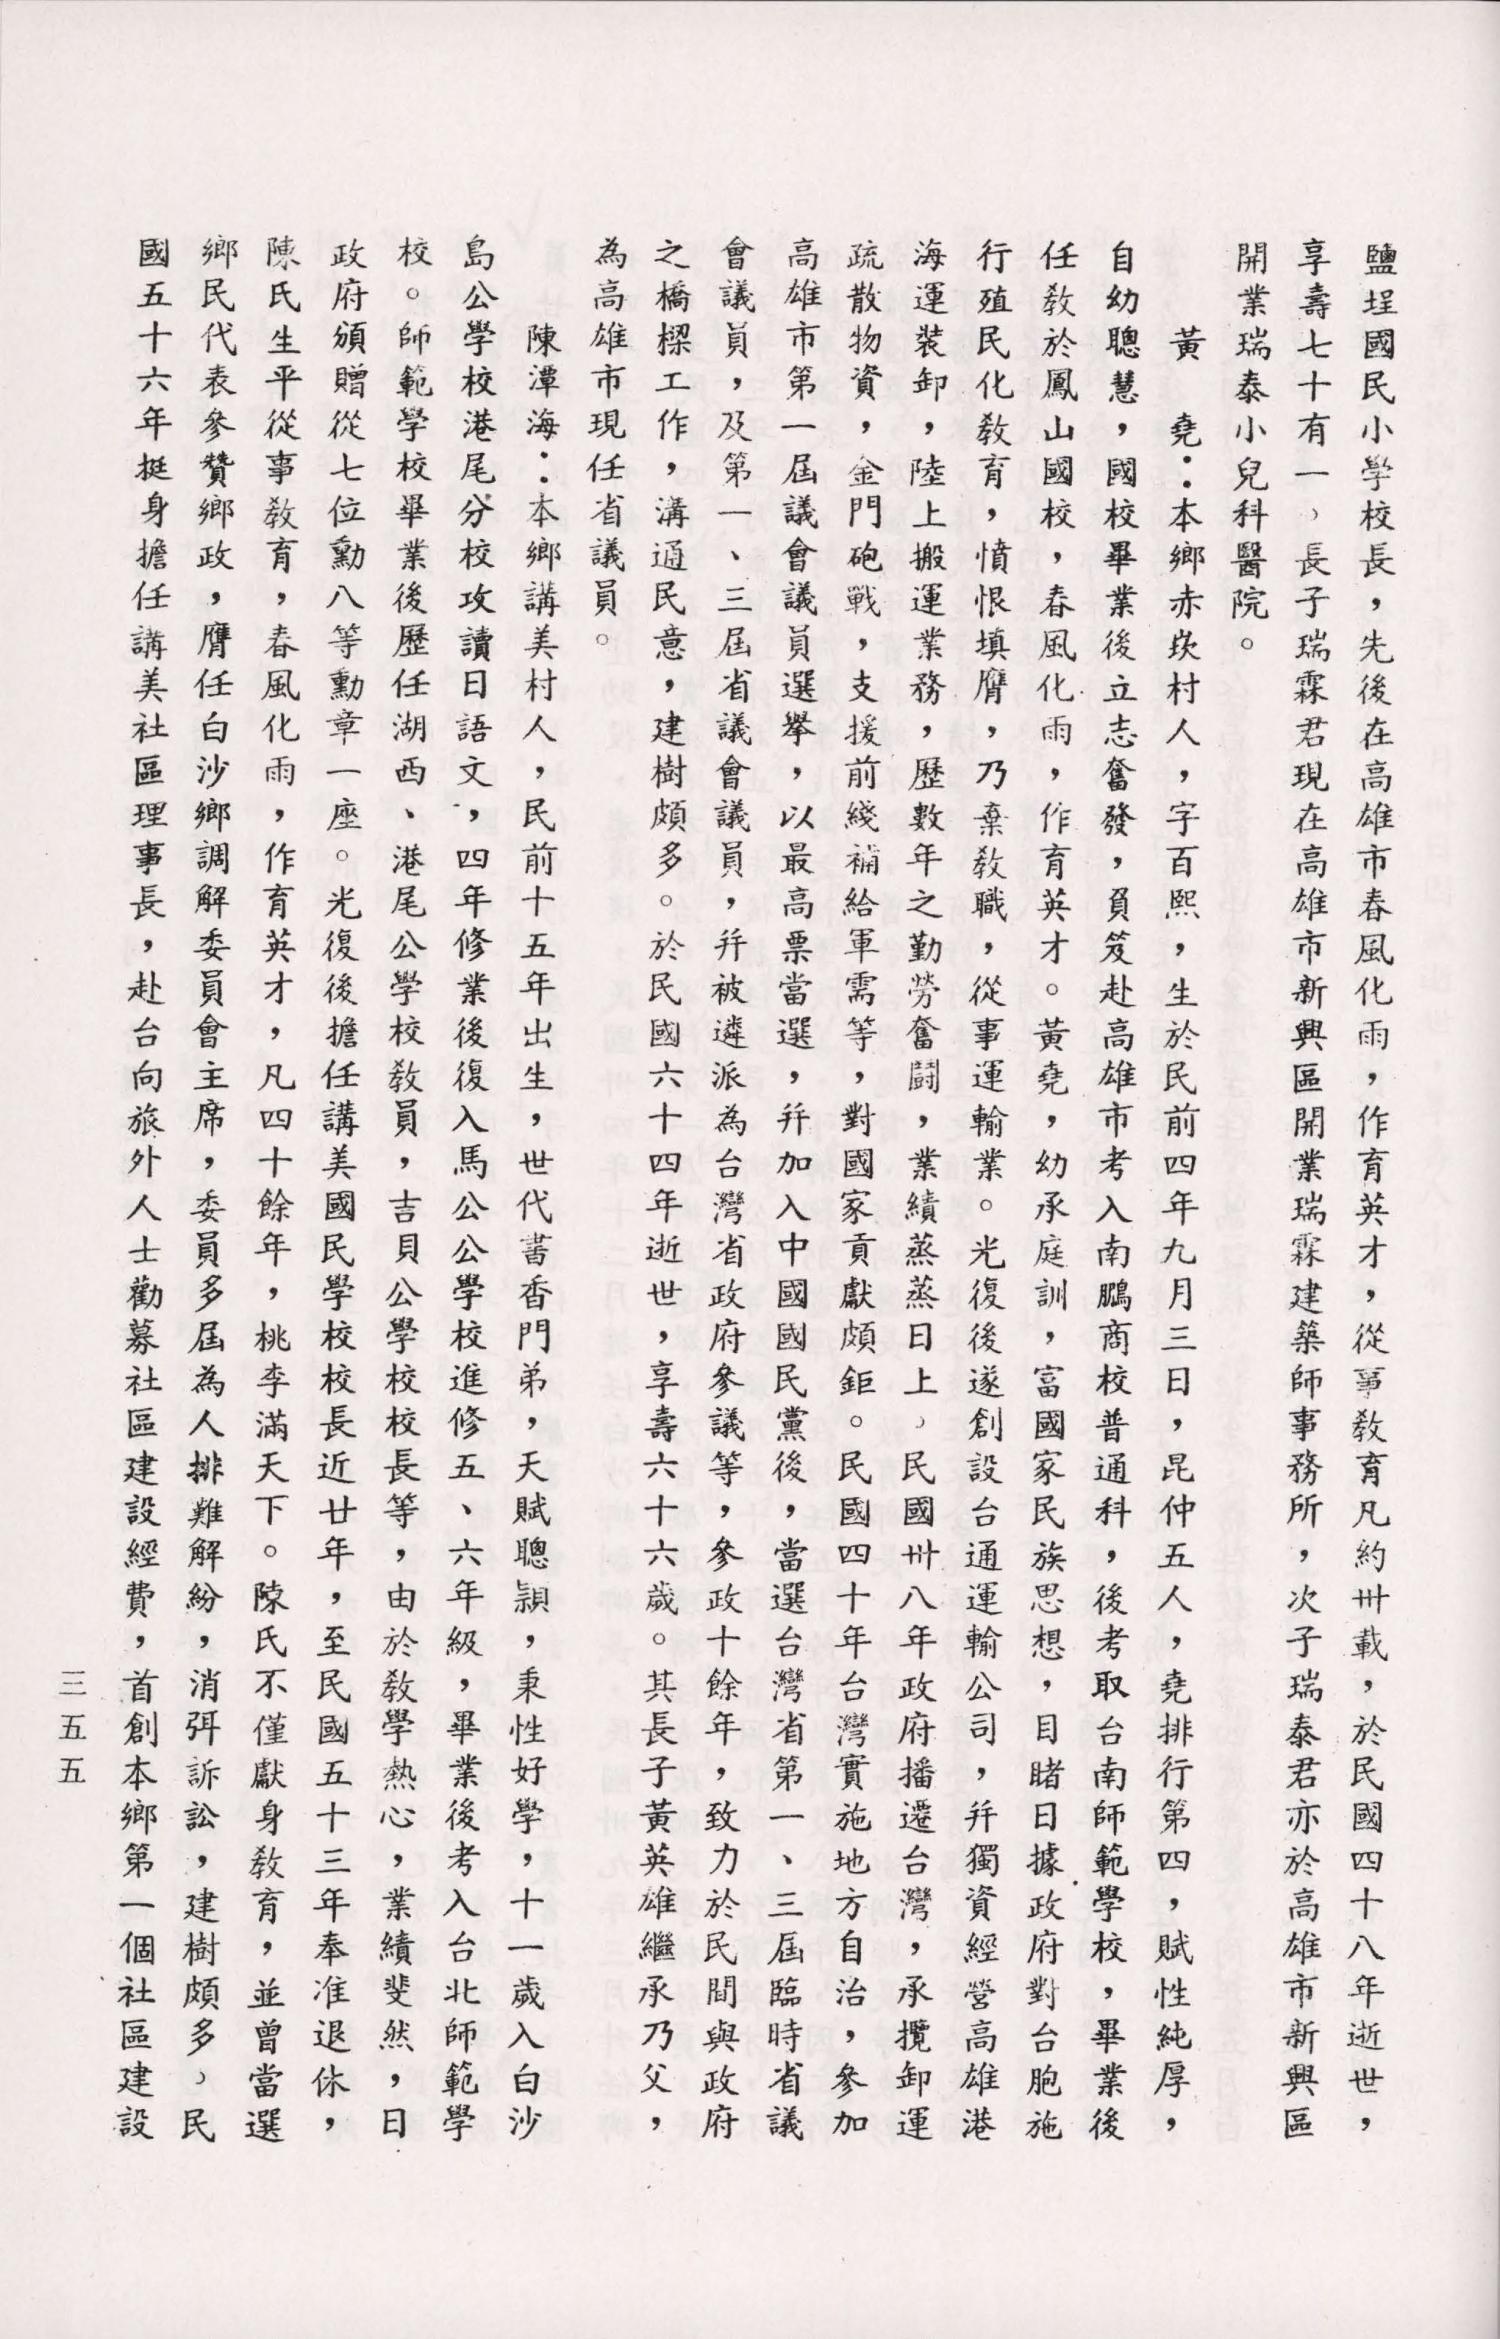 鹽埕國民小學校長，先後在高雄市春風化雨，作育英才，從事敎育凡約卅載，於民國四十八年逝世，
享壽七十有一，長子瑞霖君現在高雄市新興區開業瑞霖建築師事務所，次子瑞泰君亦於高雄市新興區
開業瑞泰小兒科醫院。
黃　堯：本鄉赤崁村人，字百熙，生於民前四年九月三日，昆仲五人，堯排行第四，賦性純厚，
自幼聰慧，國校畢業後立志奮發，負笈赴高雄市考入南鵬商校普通科，後考取台南師範學校，畢業後
任敎於鳳山國校，春風化雨，作育英才。黃堯，幼承庭訓，富國家民族思想，目睹日據政府對台胞施
行殖民化敎育，憤恨填膺，乃棄敎職，從事運輸業。光復後遂創設台通運輸公司，幷獨資經營高雄港
海運裝卸，陸上搬運業務，歷數年之勤勞奮鬪，業績蒸蒸日上，民國卅八年政府播遷台灣，承攬卸運
疏散物資，金門砲戰，支援前綫補給軍需等，對國家貢獻頗鉅。民國四十年台灣實施地方自治，參加
高雄市第一屆議會議員選擧，以最高票當選，幷加入中國國民黨後，當選台灣省第一、三屆臨時省議
會議員，及第一、三屆省議會議員，幷被遴派為台灣省政府參議等，參政十餘年，致力於民間與政府
之橋樑工作，溝通民意，建樹頗多。於民國六十四年逝世，享壽六十六歲。其長子黃英雄繼承乃父，
為高雄市現任省議員。
陳潭海：本鄉講美村人，民前十五年出生，世代書香門弟，天賦聰穎，秉性好學，十一歲入白沙
島公學校港尾分校攻讀日語文，四年修業後復入馬公公學校進修五、六年級，畢業後考入台北師範學
校。師範學校畢業後歷任湖西、港尾公學校敎員，吉貝公學校校長等，由於敎學熱心，業績斐然，日
政府頒贈從七位勳八等勳章一座。光復後擔任講美國民學校校長近廿年，至民國五十三年奉准退休，
陳氏生平從事敎育，春風化雨，作育英才，凡四十餘年，桃李滿天下。陳氏不僅獻身敎育，並曾當選
鄉民代表參贊鄉政，膺任白沙鄉調解委員會主席，委員多屆為人排難解紛，消弭訴訟，建樹頗多，民
國五十六年挺身擔任講美社區理事長，赴台向旅外人士勸募社區建設經費，首創本鄉第一個社區建設
三五五